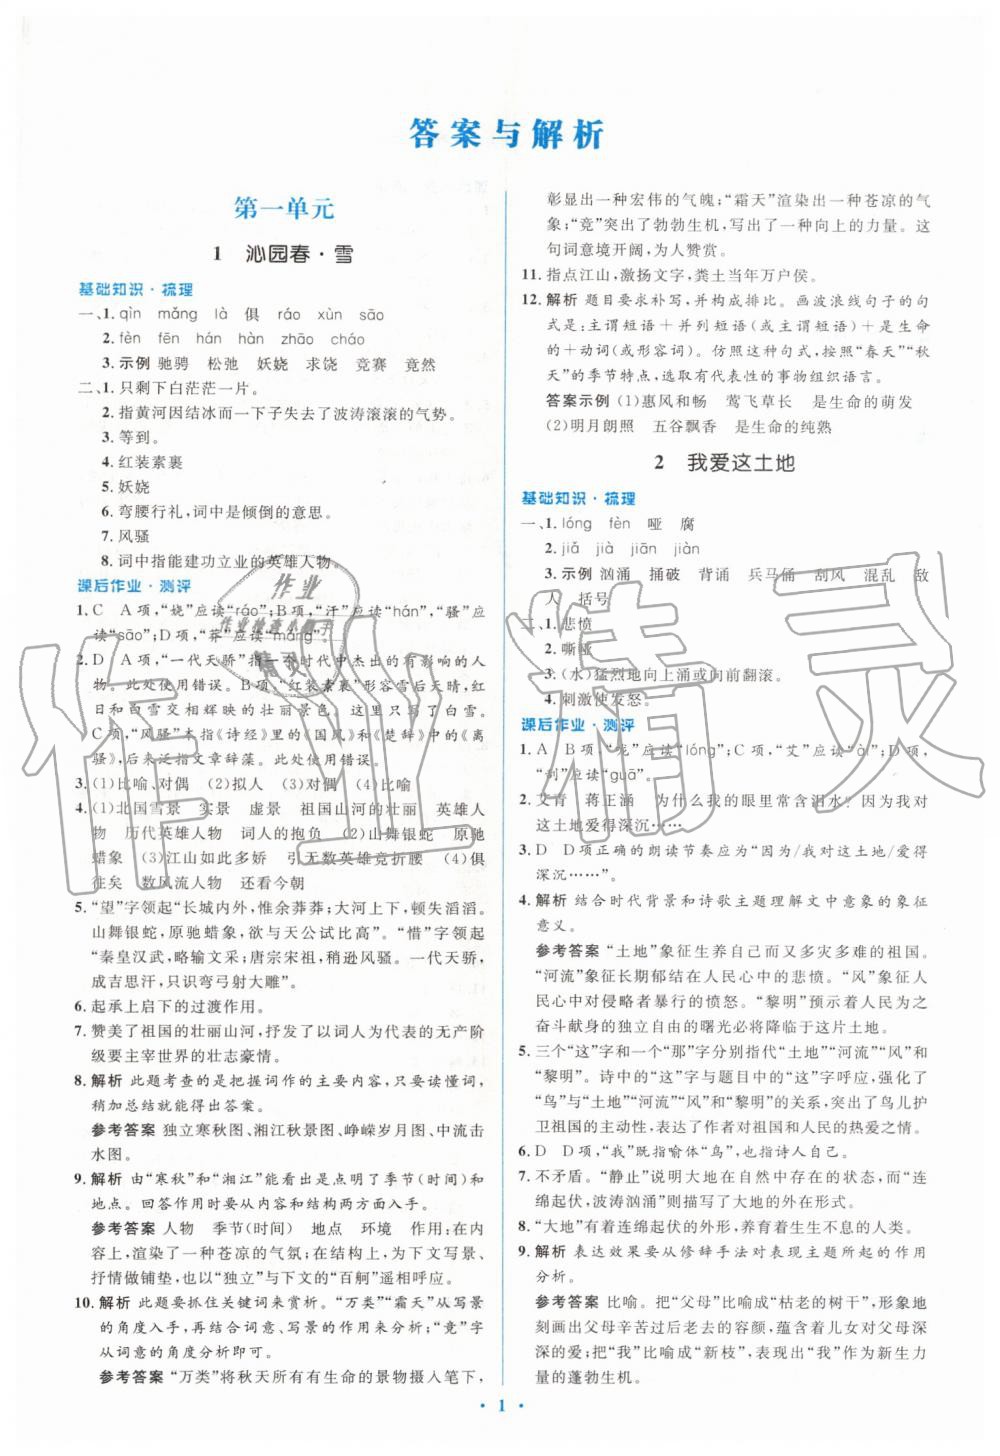 答案与解析
第一单元
1 沁园春·雪
基础知识·梳理
一、1. qìn mǎng là 俱 ráo xùn sāo
2. fèn fēn hán hàn zhāo cháo
3. 示例 驰骋 松弛 妖娆 求饶 竞赛 竟然
二、1. 只剩下白茫茫一片。
2. 指黄河因结冰而一下子失去了波涛滚滚的气势。
3. 等到。
4. 红装素裹
5. 妖娆
6. 弯腰行礼,词中是倾倒的意思。
7. 风骚
8. 词中指能建功立业的英雄人物。
课后作业·测评
1. C A项,“娆”应读“ráo”;B项,“汗”应读“hán”,“骚”应
读“sāo”;D项,“莽”应读“mǎng”。
2. D A项,“一代天骄”指一个时代中杰出的有影响的人
物。此处使用错误。B项,“红装素裹”形容雪后天晴,红
日和白雪交相辉映的壮丽景色。此处只写了白雪。
C项,“风骚”本指《诗经》里的《国风》和《楚辞》中的《离
骚》,后来泛指文章辞藻。此处使用错误。
3. (1)比喻、对偶 (2)拟人 (3)对偶 (4)比喻
4. (1)北国雪景 实景 虚景 祖国山河的壮丽 英雄人
物 历代英雄人物 词人的抱负 (2)山舞银蛇 原驰
蜡象 (3)江山如此多娇 引无数英雄竞折腰 (4)俱
往矣 数风流人物 还看今朝
5. “望”字领起“长城内外,惟余莽莽;大河上下,顿失滔滔。
山舞银蛇,原驰蜡象,欲与天公试比高”。“惜”字领起
“秦皇汉武,略输文采;唐宗宋祖,稍逊风骚。一代天骄,
成吉思汗,只识弯弓射大雕”。
6. 起承上启下的过渡作用。
7. 赞美了祖国的壮丽山河,抒发了以词人为代表的无产阶
级要主宰世界的壮志豪情。
8. 解析 此题考查的是把握词作的主要内容,只要读懂词,
稍加总结就能得出答案。
参考答案 独立寒秋图、湘江秋景图、峥嵘岁月图、中流击
水图。
9. 解析 由“寒秋”和“湘江”能看出是点明了季节(时间)和
地点。回答作用时要从内容和结构两方面入手。
参考答案 人物 季节(时间) 地点 环境 作用:在内
容上,渲染了一种苍凉的气氛;在结构上,为下文写景、
抒情做铺垫,也以“独立”与下文的“百舸”遥相呼应。
10. 解析 此题要抓住关键词来赏析。“万类”“霜天”从写景
的角度入手,再结合词意、写景的作用来分析;“竞”字
从词意的角度分析即可。
参考答案 “万类”将秋天所有有生命的景物摄入笔下,
彰显出一种宏伟的气魄;“霜天”渲染出一种苍凉的气
象;“竞”突出了勃勃生机,写出了一种向上的力量。这
句词意境开阔,为人赞赏。
11. 指点江山,激扬文字,粪土当年万户侯。
12. 解析 题目要求补写,并构成排比。画波浪线句子的句
式是:主谓短语+并列短语(或主谓短语)+是生命
的+动词(或形容词)。仿照这种句式,按照“春天”“秋
天”的季节特点,选取有代表性的事物组织语言。
答案示例 (1)惠风和畅 莺飞草长 是生命的萌发
(2)明月朗照 五谷飘香 是生命的纯熟
2 我爱这土地
基础知识·梳理
一、1. lóng fèn 哑 腐
2. jiǎ jià jiān jiàn
3. 示例 汹涌 捅破 背诵 兵马俑 刮风 混乱 敌
人 括号
二、1. 悲愤
2. 嘶哑
3. (水)猛烈地向上涌或向前翻滚。
4. 刺激使发怒。
课后作业·测评
1. A B项,“龙”应读“lóng”;C项,“艾”应读“ài”;D项,
“刮”应读“guā”。
2. 艾青 蒋正涵 为什么我的眼里常含泪水?因为我对
这土地爱得深沉……
3. D D项正确的朗读节奏应为“因为/我对这土地/爱得
深沉……”。
4. 解析 结合时代背景和诗歌主题理解文中意象的象征
意义。
参考答案 “土地”象征生养自己而又多灾多难的祖国。
“河流”象征长期郁结在人民心中的悲愤。“风”象征人
民心中对侵略者暴行的愤怒。“黎明”预示着人民为之
奋斗献身的独立自由的曙光必将降临于这片土地。
5. 三个“这”字和一个“那”字分别指代“土地”“河流”“风”和
“黎明”。诗中的“这”字与题目中的“这”字呼应,强化了
“鸟”与“土地”“河流”“风”和“黎明”的关系,突出了鸟儿护
卫祖国的主动性,表达了作者对祖国和人民的热爱之情。
6. D D项,“我”既指喻体“鸟”,也指诗人自己。
7. 不矛盾。“静止”说明大地在自然中存在的状态,而“连
绵起伏,波涛汹涌”则描写了大地的外在形式。
8. “大地”有着连绵起伏的外形,养育着生生不息的人类。
9. 解析 表达效果要从修辞手法对表现主题所起的作用
分析。
参考答案 比喻。把“父母”比喻成“枯老的树干”,形象地
刻画出父母辛苦过后老去的容颜,蕴含着儿女对父母深
深的爱;把“我”比喻成“新枝”,表现出“我”作为新生力
量的蓬勃生机。
1
作业精灵
作业
作业检查小助手
精灵